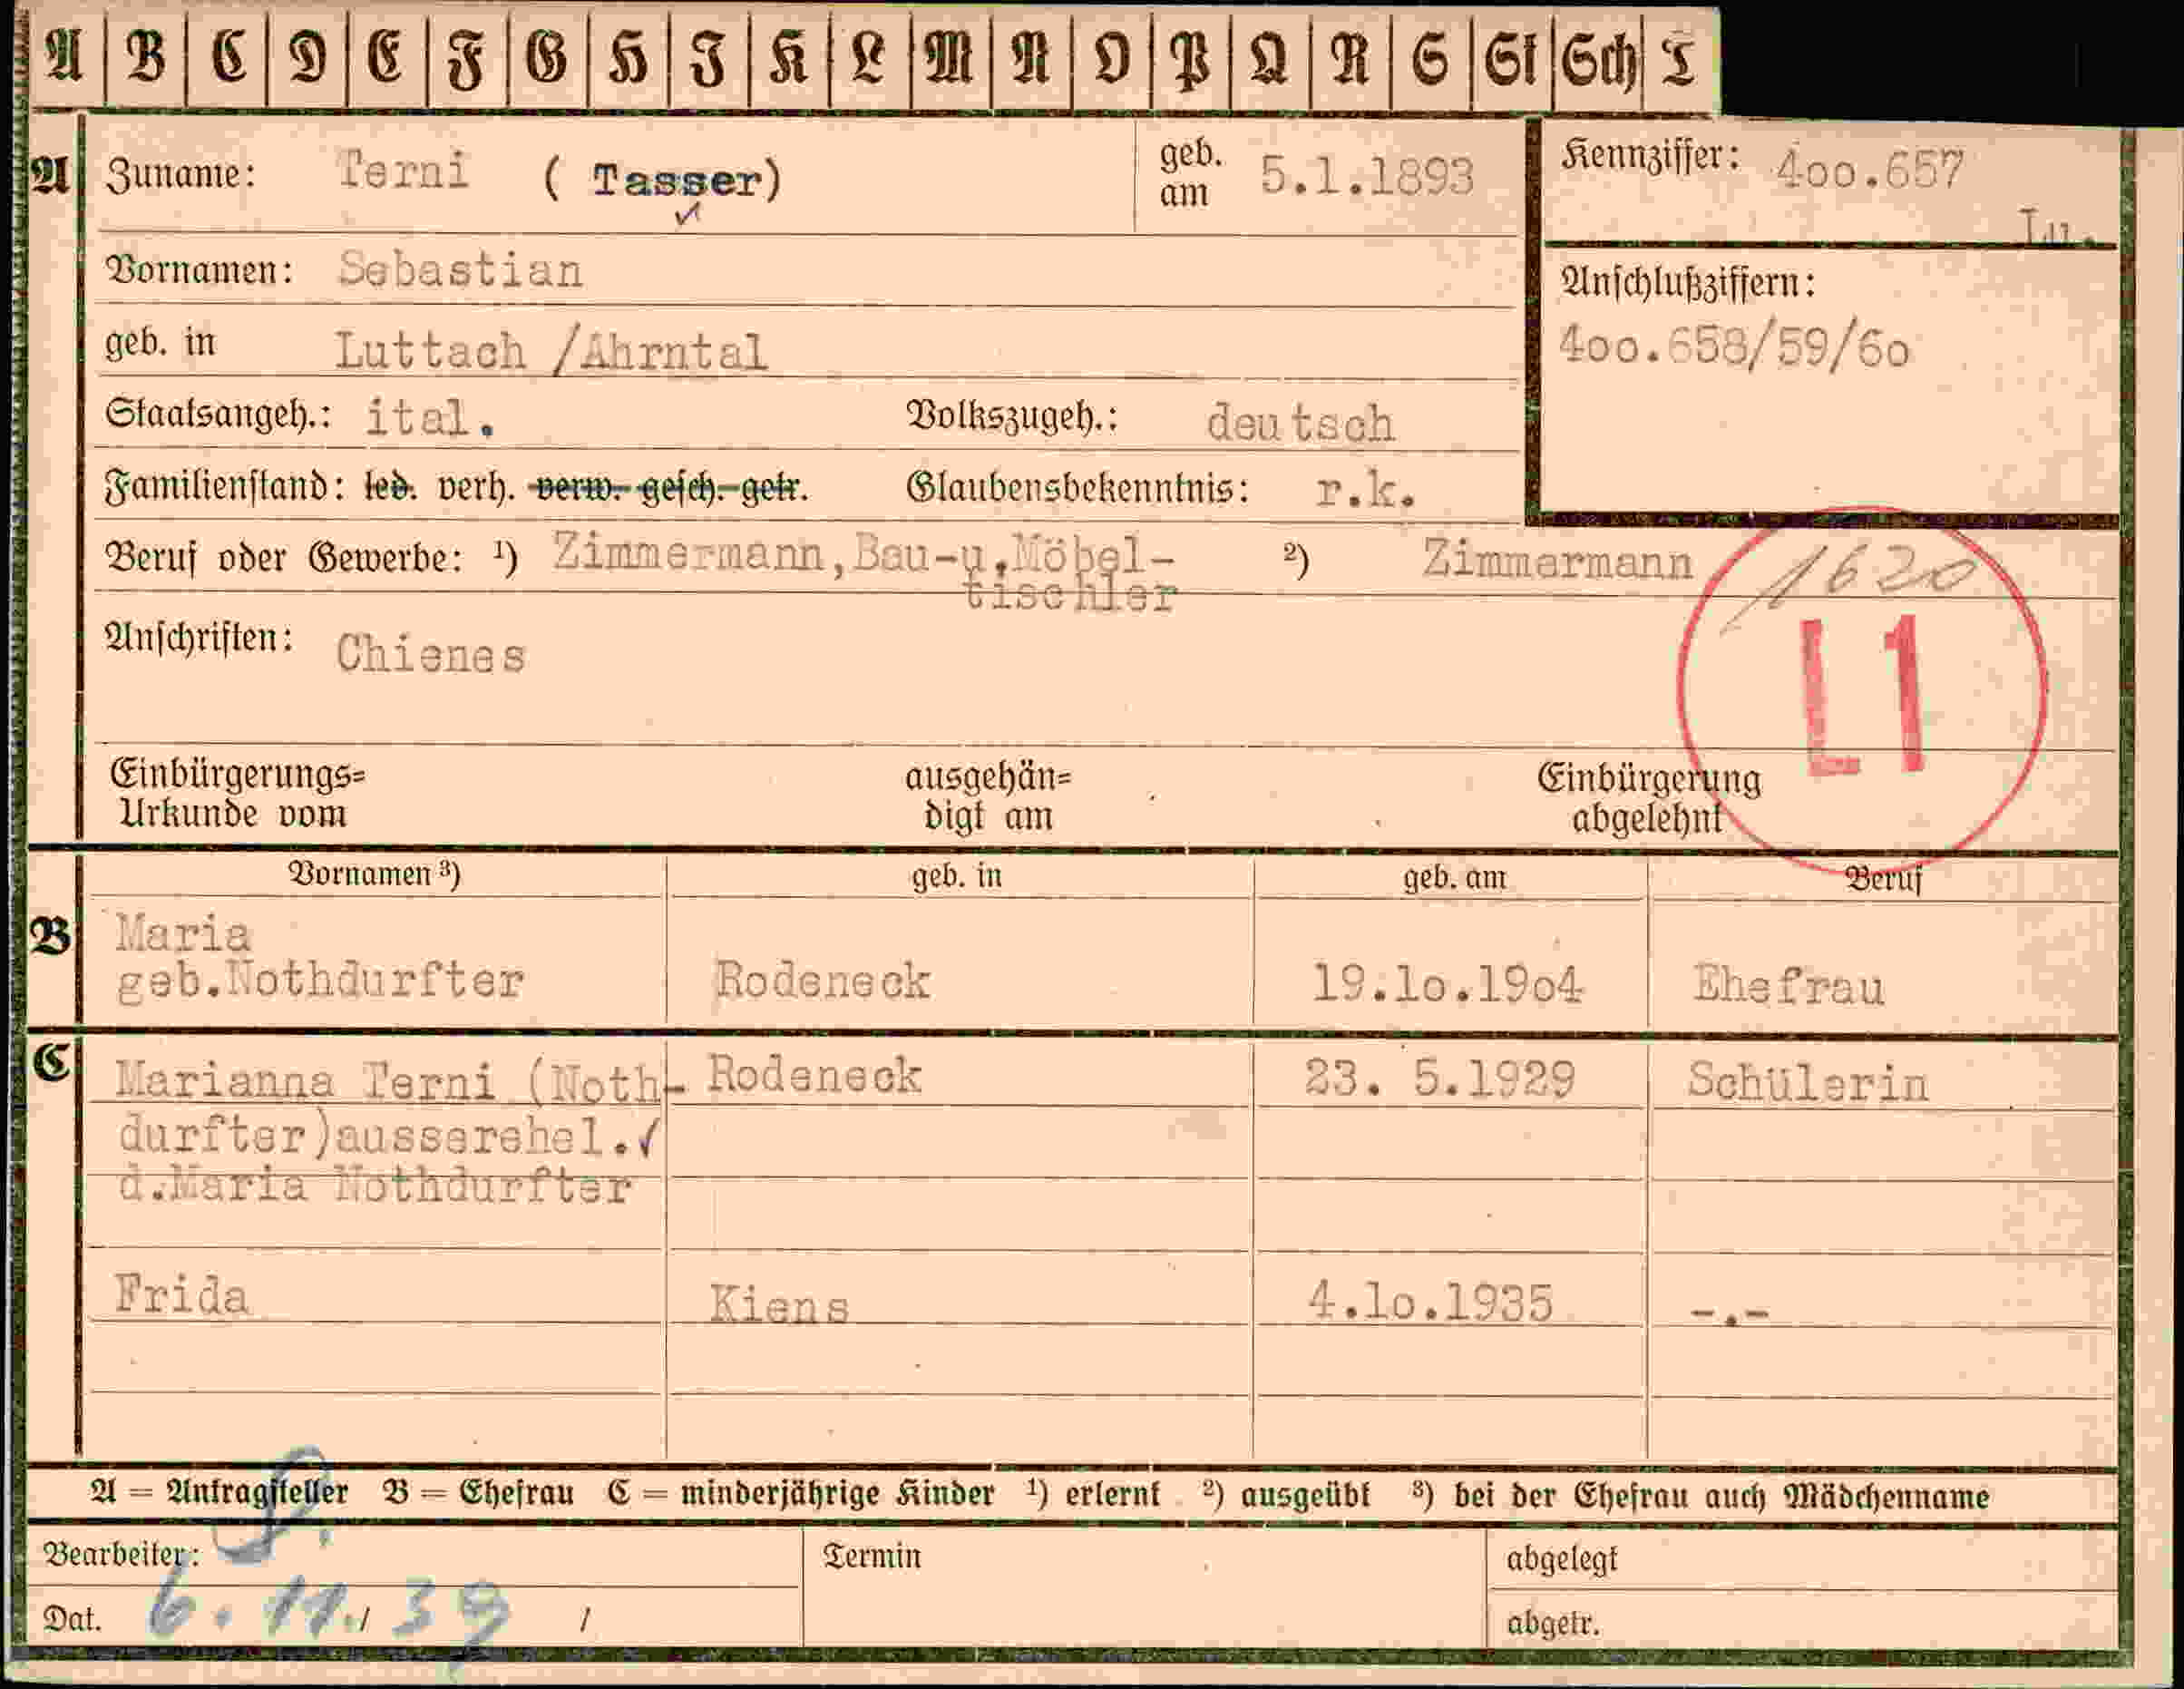 A B C D E F G H I K L M N O P Q R S St Sch T
A Zuname: Terni ( Tasser) geb. am 5.1.1893 Kennziffer: 4oo.657
Lu.
Vornamen: Sebastian Anschlußziffern:
geb. in Luttach /Ahrntal 4oo.658/59/6o
Staatsangeh.: ital. Volkszugeh.: deutsch
Familienstand: led. verh. verw. gesch. getr. Glaubensbekenntnis: r.k.
Beruf oder Gewerbe: ¹) Zimmermann,Bau-u.Möbel- ²) Zimmermann 1620
tischler
Anschriften: Chienes L1
Einbürgerungs= ausgehän= Einbürgerung
Urkunde vom digt am abgelehnt
Vornamen ³) geb. in geb. am Beruf
B Maria
geb.Nothdurfter Rodeneck 19.1o.19o4 Ehefrau
C Marianna Terni (Noth- Rodeneck 23. 5.1929 Schülerin
durfter)ausserehel.✓
d.Maria Nothdurfter
Frida Kiens 4.1o.1935 -.-
A = Antragsteller B = Ehefrau C = minderjährige Kinder ¹) erlernt ²) ausgeübt ³) bei der Ehefrau auch Mädchenname
Bearbeiter: Termin abgelegt
Dat. 6.11./39 / abgetr.